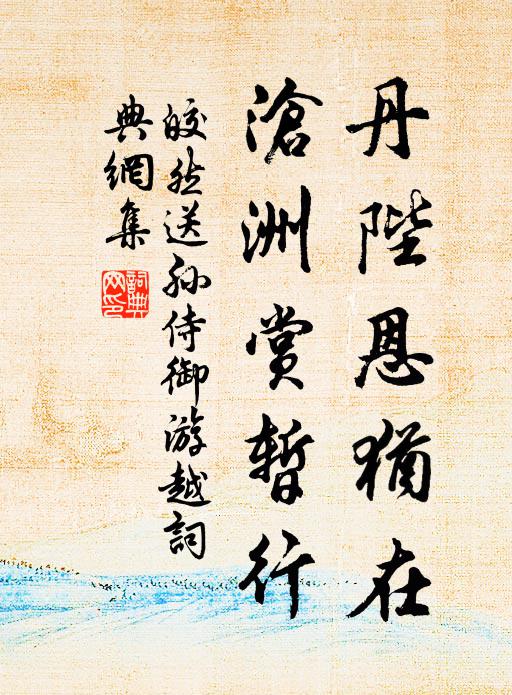 丹陛恩猶在
滄洲賞暫行
皎然送孙侍御游越詞
典網集
詞典
网印